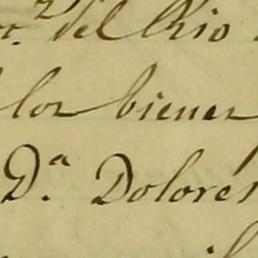 del Rio
los bienes
D.ª Dolores